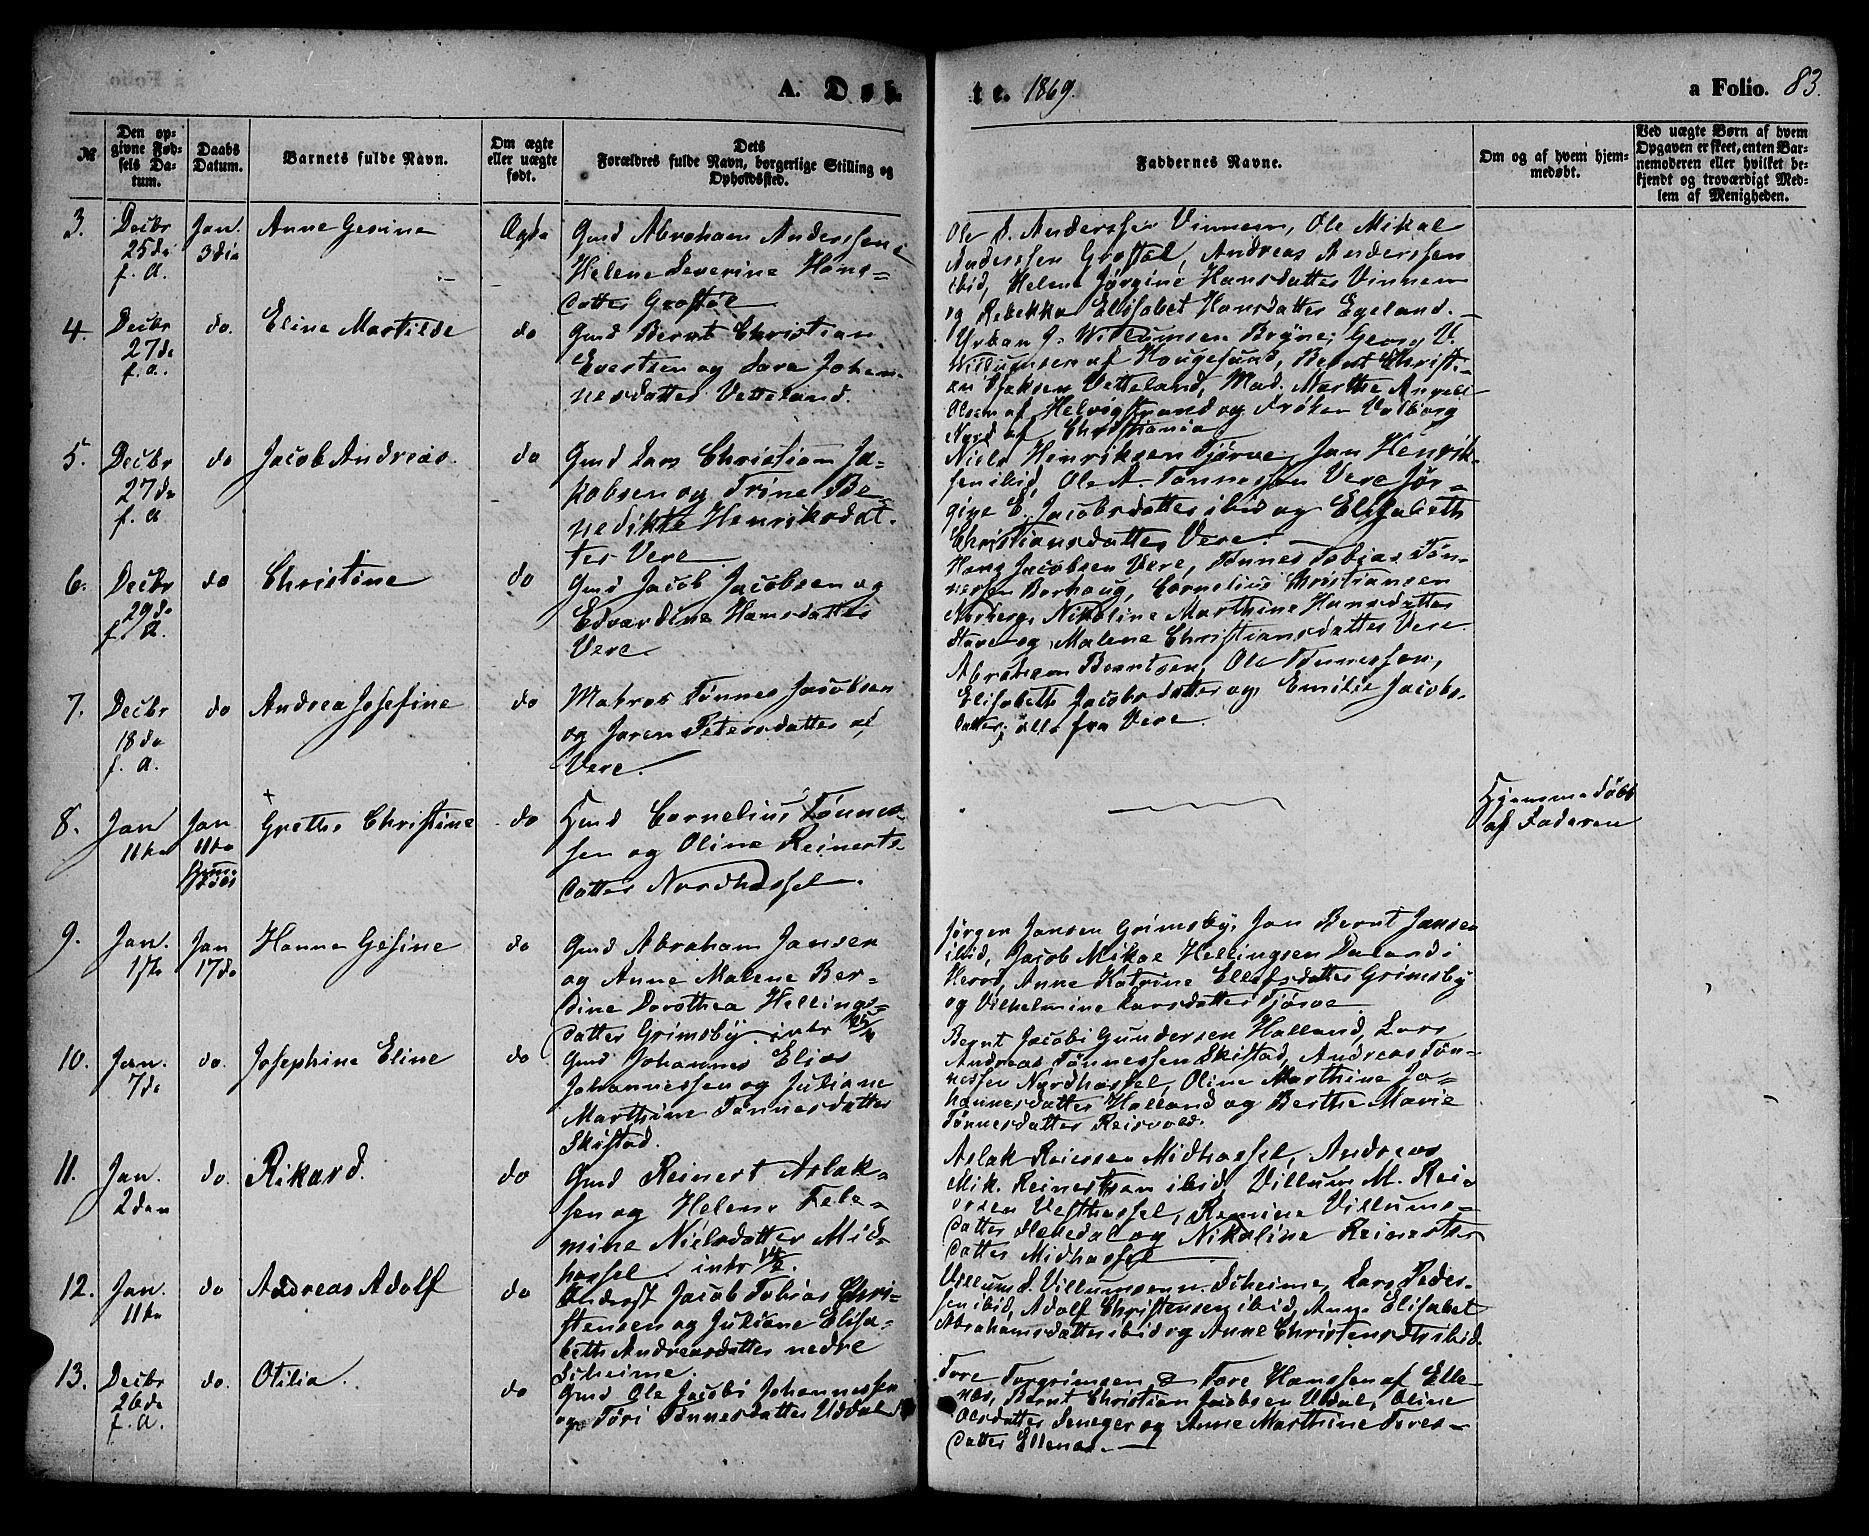 A. Døb-
te. 1869.
a Folio. 83.
№
Den op-
givne Fød-
sels Da-
tum.
Daabs
Datum.
Barnets fulde Navn.
Om ægte
eller uægte
født.
Dets
Forældres fulde Navn, borgerlige Stilling og
Opholdssted.
Faddernes Navne.
Om og af hvem hjem-
medøbt.
Ved uægte Børn af hvem
Opgaven er skeet, enten Bar-
nemoderen eller hvilket be-
kjendt og troværdigt Med-
lem af Menigheden.
3.
Decbr
25de
f. A.
Jan.
3die
Anne Gesine
Ægte
Gmd Abraham Anderssen
Helene Severine Hans-
datter Grostøl
Ole S. Anderssen Vinnem, Ole Mikal
Anderssen Grostøl, Andreas Anderssen
ibid, Helene Jørgine Hansdatter Vinnem
og Rebekka Elisabet Hansdatter Egeland.
4.
Decbr
27de
f. A.
do.
Eline Martilde
do
Gmd Bernt Christian
Evertsen og Sara Johan-
nesdatter Vetteland.
Urban G. Willumsen Bryne, Georg V.
Willumsen af Haugesund, Bernt Christi-
an Isaksen Vetteland, Mad. Marthe
Olsen af Helvigstrand og Frøken Valborg
af Christiania
5.
Decbr
27de
f. A
do
Jacob Andreas.
do
Gmd Lars Christian Ja-
kobsen og Trine Be-
nedikte Henriksdat-
ter Vere
Niels Henriksen Tjørve, Jan Henrik-
sen ibid, Ole A. Tønnessen Vere Jør-
gine E. Jacobsdatter ibid og Elisabeth
Christiansdatter Vere.
6.
Decbr
29de
f. A.
do
Christine
do
Gmd Jacob Jacobsen og
Edvardine Hansdatter
Vere.
Hans Jacobsen Vere, Tønnes Tobias Tøn-
nessen Borhaug, Cornelius Christiansen
Norberg, Nikoline Marthine Hansdatter
og Malene Christiansdatter Vere.
7.
Decbr
18de
f. A.
do
Andrea Josefine
do
Matros Tønnes Jacobsen
og Jaren Petersdatter af
Vere.
Abraham Berntsen, Ole Tønnessen,
Elisabeth Jacobsdatter og Emilie Jacobs-
datter, alle fra Vere
8.
Jan
11te
Jan
11te
Grethe Christine
do
Gmd Cornelius Tønnes-
sen og Oline Reinerts-
datter Nordhassel.
Hjemmedøbt
af Faderen
9.
Jan.
1ste
Jan
17de
Hanne Gesine
do
Gmd Abraham Jansen
og Anne Malene Ber-
dine Dorothea Hellings-
datter Grimsby. intr
Jørgen Jansen Grimsby, Jan Bernt Jansen
ibid, Jacob Mikal Hellingsen Daland i
Herred, Anne Katrine Ellefsdatter Grimsby
og Vilhelmine Larsdatter Tjørve
10.
Jan.
7de
do.
Josephine Eline
do
Gmd Johannes Elias
Johannessen og Juliane
Marthine Tønnesdatter
Skistad.
Bernt Jacobi Gundersen Halland, Lars
Andreas Tønnessen Skistad, Andreas Tøn-
nessen Nordhassel, Oline Marthine Jo-
hannesdatter Halland og Berthe Marie
Tønnesdatter Reisvold.
11.
Jan.
2den
do.
Rikard.
do
Gmd Reinert Aslak-
sen og Helene Tele-
mine Nielsdatter Mid-
hassel. intr 14/2.
Aslak Reiersen Midhassel, Andreas
Mik. Reinertsen ibid, Villum M. Rei-
ersen Vesthassel, Remine Villums-
datter og Nikoline Reinerts-
datter Midhassel
12.
Jan.
11te
do
Andreas Adolf
do
Jacob Tobias Chri-
stensen og Juliane Elisa-
beth Andreasdatter nedre
Skeime.
Villum S. Villumsen n. Skeime, Lars Peder-
sen ibid, Adolf Christensen ibid, Anne Elisabet
Abrahamsdatter ibid og Anne Christensdtr ibid.
13.
Decbr
26de
f. A.
do.
Otilia.
do
Gmd Ole Jacobi Johannessen
og Tøri Tønnesdatter Uddal
Tore Torgrimsen & Tore Hanssen af Elle-
næs, Bernt Christian Jacobsen Uddal, Oline
Olsdatter og Anne Marthine Tores-
datter Ellenæs.